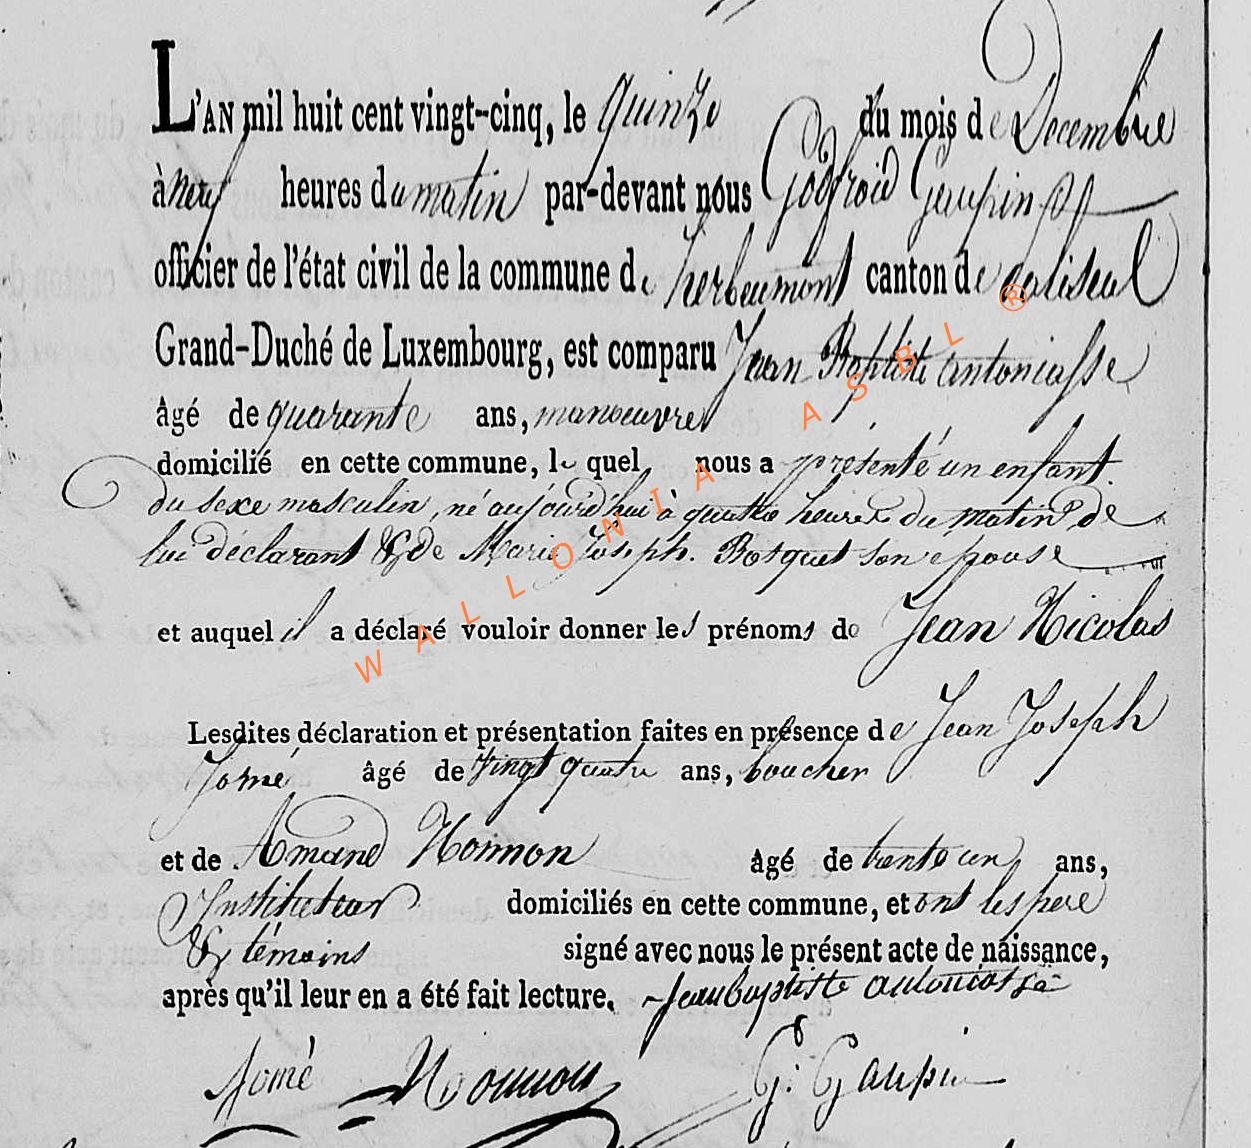 L'AN mil huit cent vingt-cinq, le quinze du mois de Decembre
à neuf heures du matin par-devant nous Godfroid Gaupin
officier de l'état civil de la commune de herbeumont canton de paliseul
Grand-Duché de Luxembourg, est comparu Jean Baptiste antoniasse
âgé de quarante ans, manoeuvre
domicilié en cette commune, le quel nous a présenté un enfant
du sexe masculin, né aujourd'hui à quatre heures du matin de
lui déclarant & de Marie Joseph Bosquet son epouse
et auquel il a déclaré vouloir donner les prénoms de Jean Nicolas
Lesdites déclaration et présentation faites en présence de Jean Joseph
Jomé âgé de vingt quatre ans, boucher
et de Amand Honnon âgé de trente un ans,
Instituteur domiciliés en cette commune, et ont les pere
& témoins signé avec nous le présent acte de naissance,
après qu'il leur en a été fait lecture. Jean baptiste
Jomé Honnon G: Gaupin
WALLONIA ASBL ®